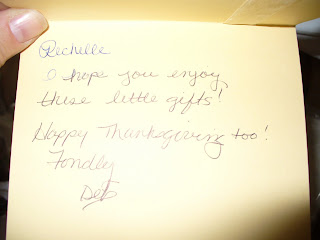 Rechelle
I hope you enjoy
these little gifts!
Happy Thanksgiving too!
Fondly
Deb